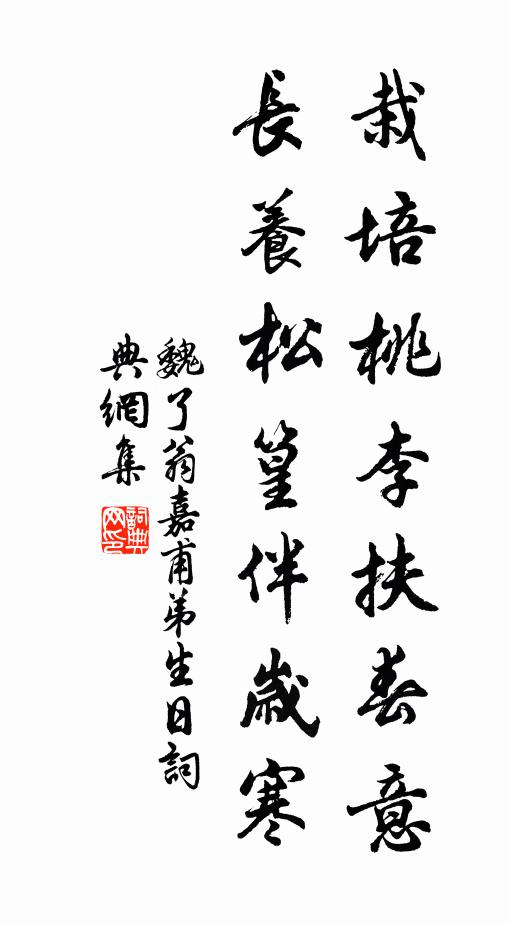 栽培桃李扶春意
長養松篁伴歲寒
魏了翁嘉甫弟生日詞
典網集
詞典網印